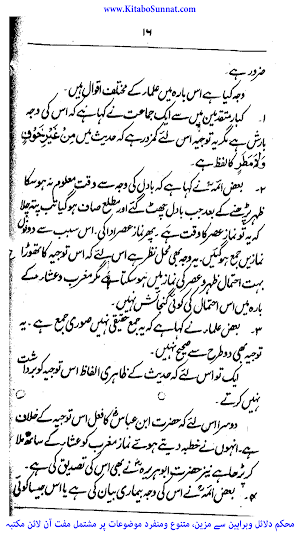 www.KitaboSunnat.com
۱۶
ضرور ہے۔
وجہ کیا ہے اس بارہ میں علماء کے مختلف اقوال ہیں۔
۱۔ کبار متقدمین میں سے ایک جماعت نے کہا ہے کہ اس کی وجہ
بارش ہے مگر یہ توجیہ اس لئے کمزور ہے کہ حدیث میں مِنْ غَيْرِ خَوْفٍ
وَلَا مَطَرٍ کا لفظ ہے۔
۲۔ بعض ائمہ نے کہا ہے کہ بادل کی وجہ سے وقت معلوم نہ ہو سکا
ظہر پڑھنے کے بعد جب بادل چھٹ گئے اور مطلع صاف ہو گیا تب پتہ چلا
کہ یہ تو نماز عصر کا وقت ہے۔ پھر نماز عصر ادا کی۔ اس سبب سے دونوں
نمازیں جمع ہو گئیں۔ یہ وجہ بھی محل نظر ہے اس لئے کہ اس توجیہ کا تھوڑا
بہت احتمال ظہر و عصر کی نماز میں ہو سکتا ہے مگر مغرب و عشاء کے
بارہ میں اس احتمال کی کوئی گنجائش نہیں۔
۳۔ بعض علماء نے کہا ہے کہ یہ جمع حقیقی نہیں صوری جمع ہے۔ یہ
توجیہ بھی دو طرح سے صحیح نہیں۔
ایک تو اس لئے کہ حدیث کے ظاہری الفاظ اس توجیہ کو برداشت
نہیں کرتے۔
دوسرا اس لئے کہ حضرت ابن عباسؓ کا فعل اس توجیہ کے خلاف
ہے۔ انہوں نے خطبہ دیتے ہوئے نماز مغرب کو عشاء کے ساتھ ملا
کر پڑھا ہے نیز حضرت ابو ہریرہؓ نے بھی اس کی تصدیق کی ہے۔
۴۔ بعض ائمہ نے اس کی وجہ بیماری بیان کی ہے یا اس جیسا کوئی
محکم دلائل وبراہین سے مزین، متنوع ومنفرد موضوعات پر مشتمل مفت آن لائن مکتبہ